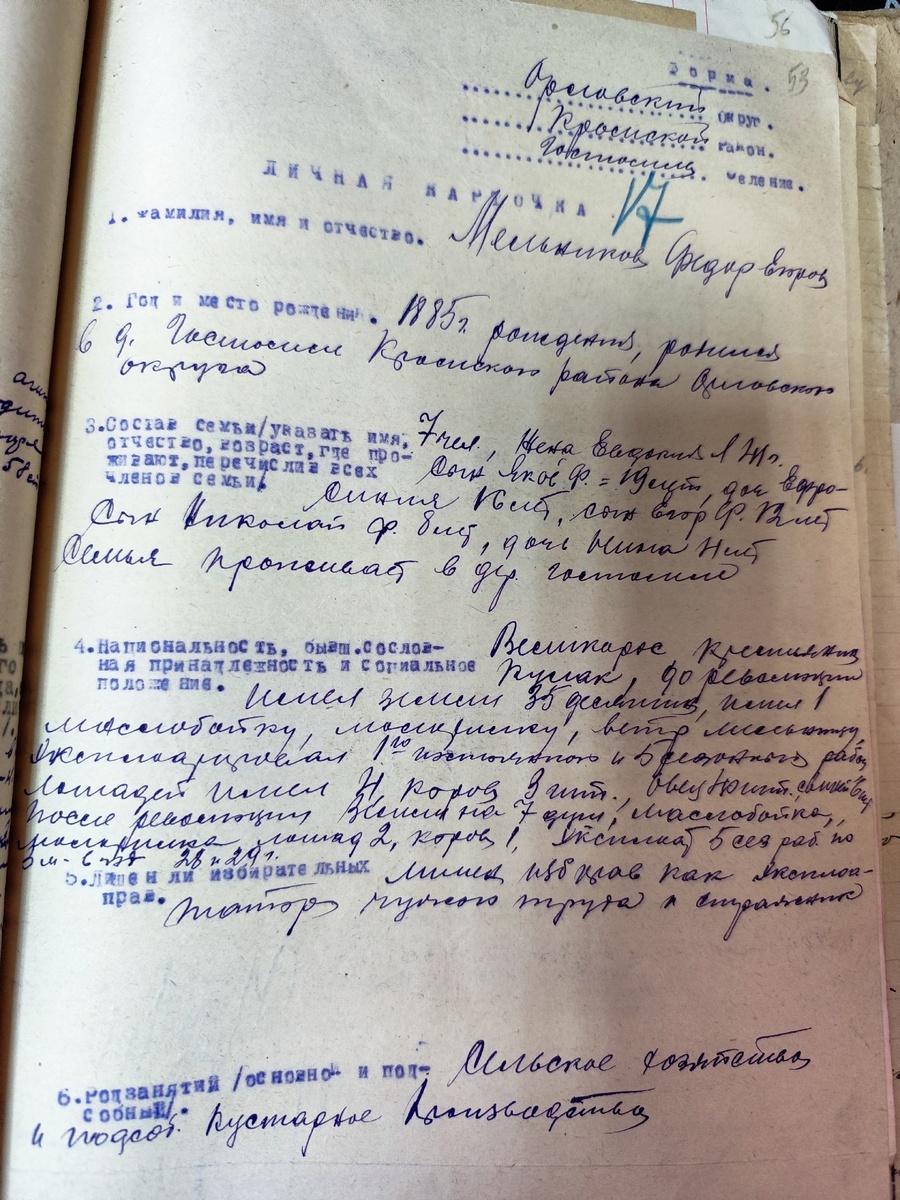 56
53
Форма.
Орловский округ.
Кромской район.
Гостомль селение.
ЛИЧНАЯ КАРТОЧКА.
17
1. Фамилия, имя и отчество. Мельников Федор Егоров
2. Год и место рождения. 1885 г. рождения, родился
в д. Гостомле Кромского района Орловского
округа
3. Состав семьи/указать имя, 7 чел., Жена Евдокия
отчество, возраст, где про- Сын Яков Ф. = 19 лет, доч Ефро-
живают, перечислив всех
членов семьи/ синия 16 лет, сын Егор Ф. 12 лет
Сын Николай Ф. 8 лет, дочь Нина 4 лет
Семья проживает в дер. Гостомле
4. Национальность, бывш. сослов- Великорос крестьянин
ная принадлежность и социальное Кулак, до революции
положение.
имел земли 35 десятин, имел 1
маслобойку, мельницу
Эксплоатировал 1го постоянного и 5 сезонных рабоч
лошадей имел 4, коров 3 шт., овец шт. свиней
После революции земли на 7 душ, маслобойка,
лошад 2, коров 1, Эксплоат 5 сез раб. по
3 м-ца 28 и 29 г.
5. Лишен ли избирательных лишен изб прав как Эксплоа-
прав.
татор чужого труда и стражник
6. Род занятий /основной и под- Сельское хозяйство
собный/.
и подсоб. Кустарное Производство